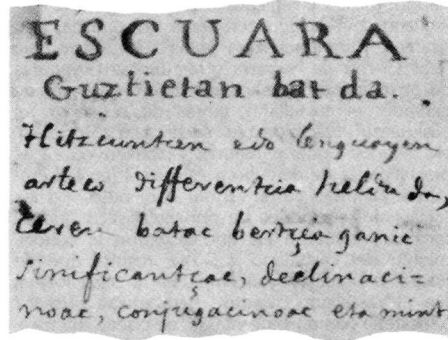 ESCUARA
Guztietan bat da.
Hitzcuntcen edo lenguoyen
arteco differentcia heldu da,
ceren batac bertcia ganic
sinificantçac, declinaci=
noac, conjugacinoac eta mint